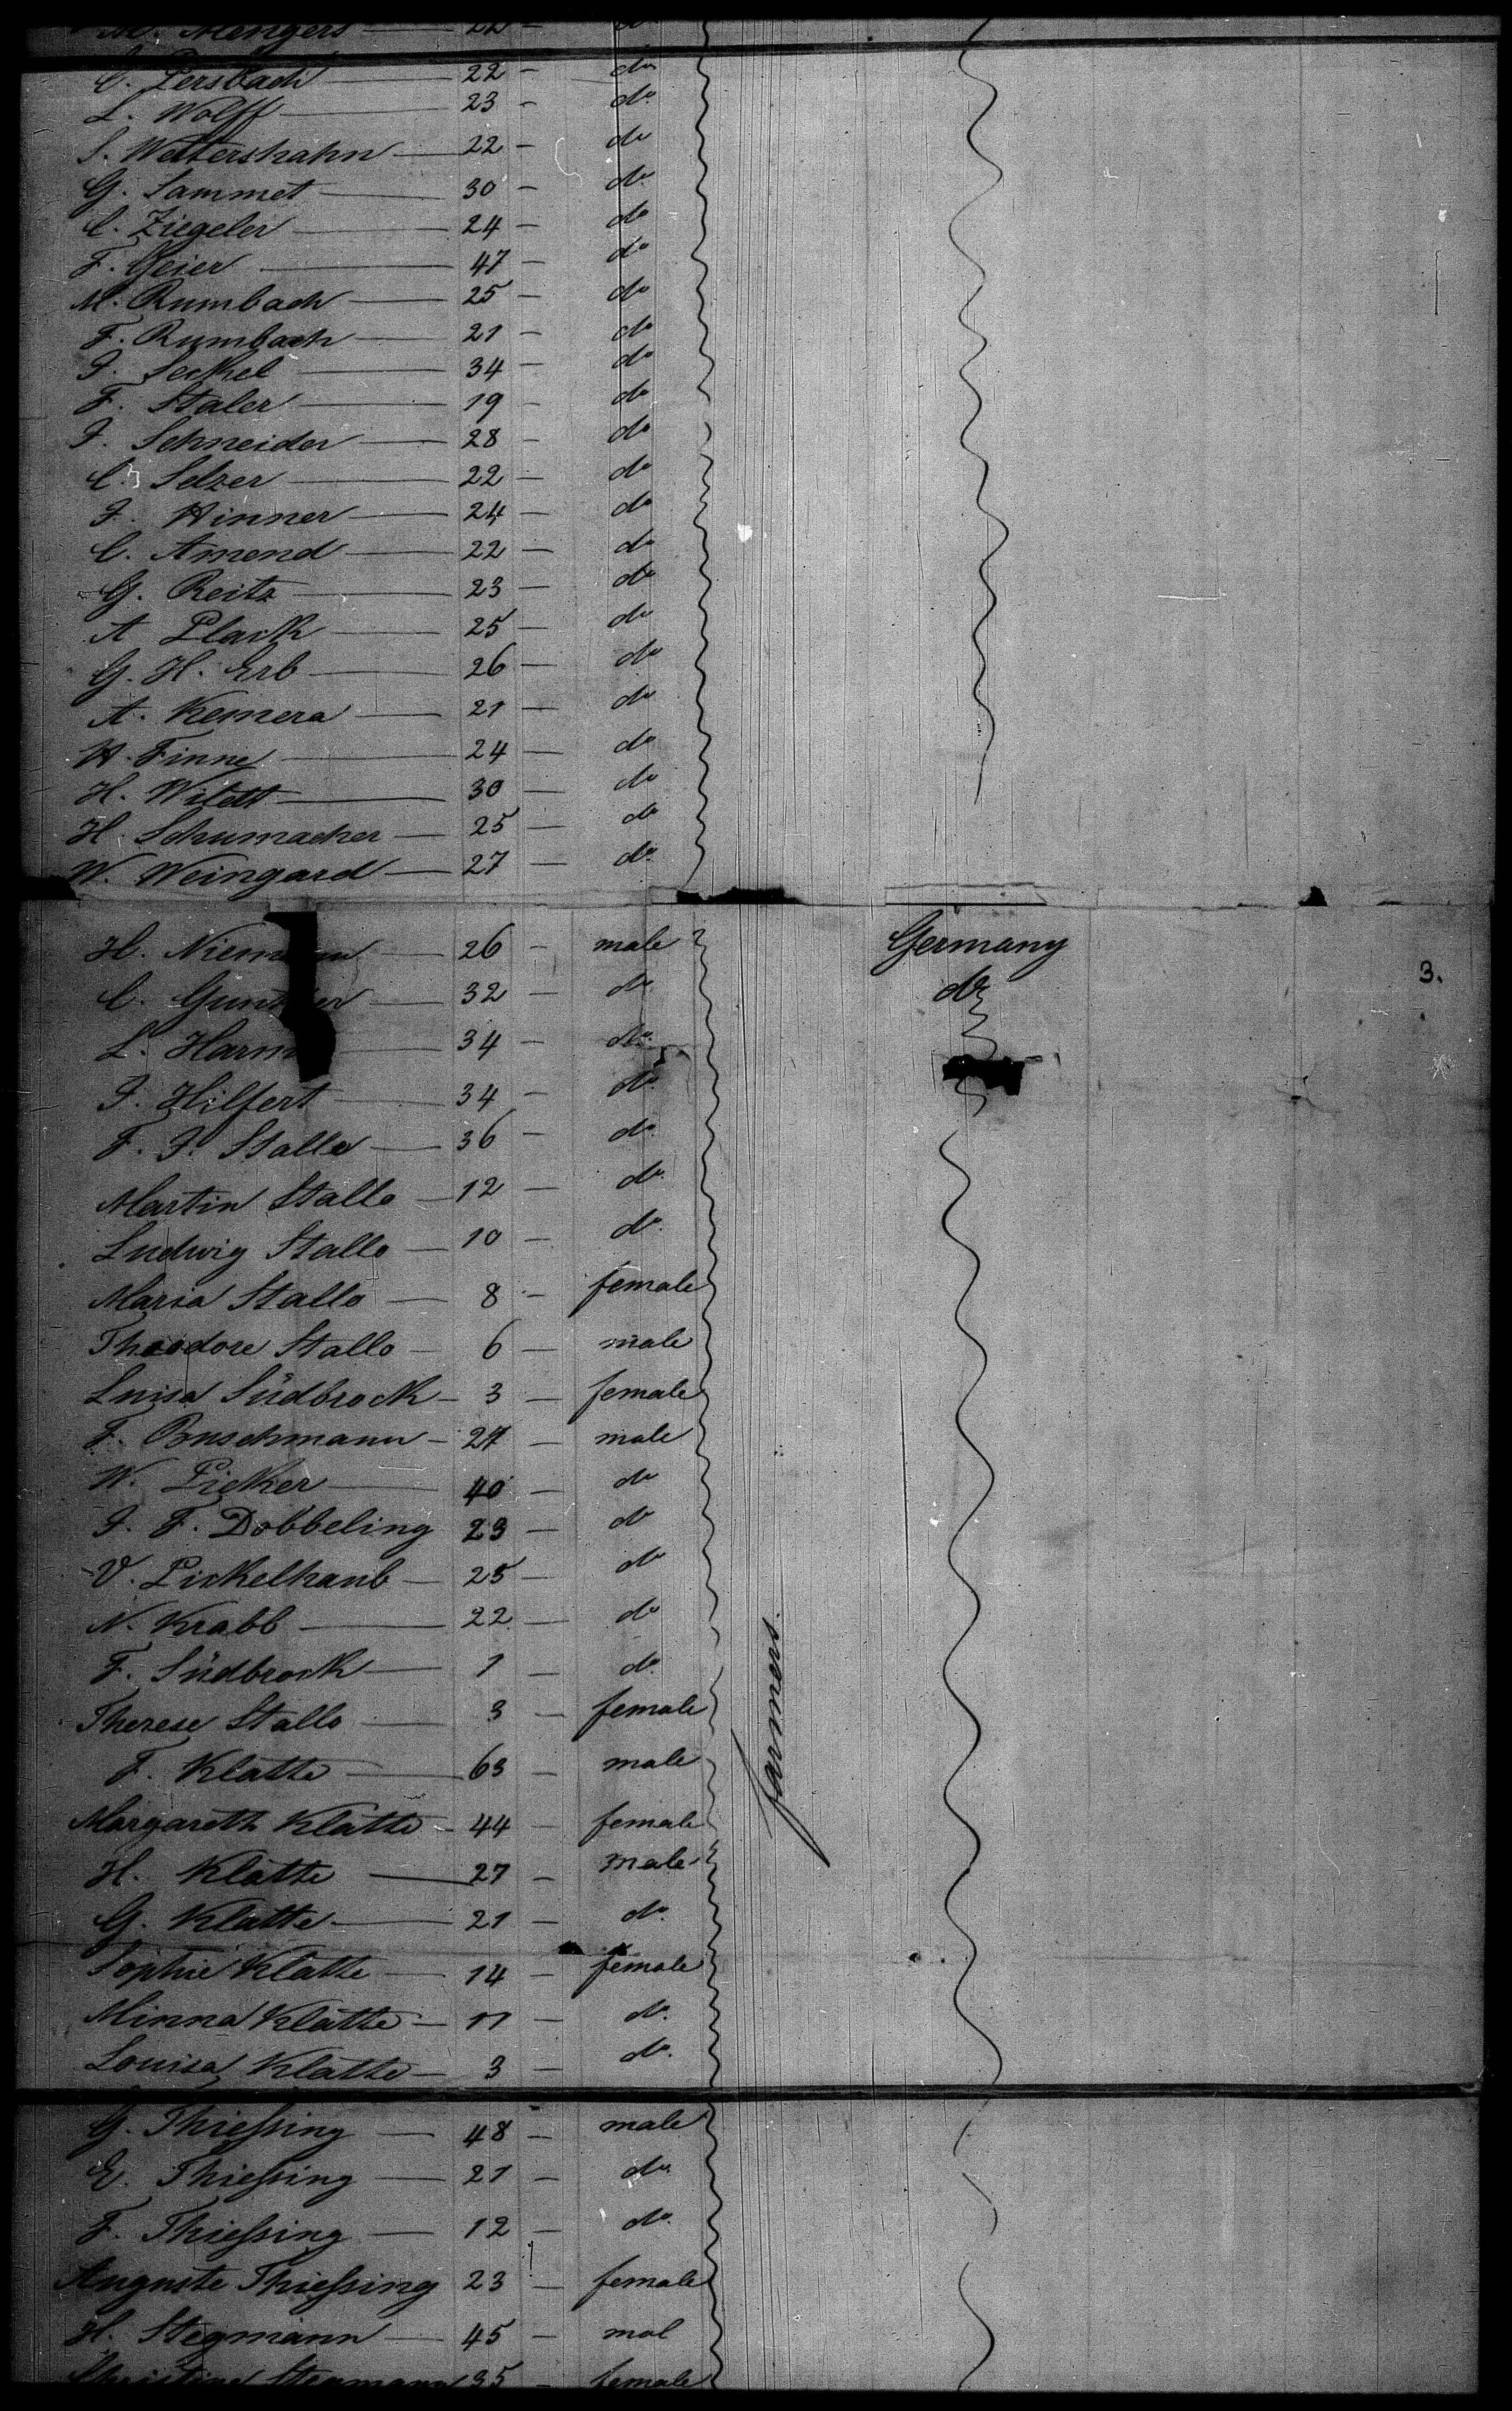 M. Mengers 22 do
C. Persbach 22 - do
L. Wolff 23 - do
S. Wettershahn 22 - do
G. Sammet 30 - do
C. Ziegeler 24 - do
F. Geier 47 - do
M. Rumbach 25 - do
F. Rumbach 21 - do
J. Seckel 34 - do
F. Staler 19 - do
J. Schneider 28 - do
C. Selzer 22 - do
J. Hinner 24 - do
C. Amend 22 - do
G. Reitz 23 - do
A Plack 25 - do
G. H. Erb 26 - do
A. Kemera 21 - do
H. Finne 24 - do
H. Wildt 30 - do
H. Schumacher 25 - do
W. Weingard 27 - do
H. 26 - male Germany
C. 32 - do do
3.
L. 34 - do
J. Hilfert 34 - do
F. J. Stallo 36 - do
Martin Stallo 12 - do
Ludwig Stallo 10 - do
Maria Stallo 8 - female
Theodore Stallo 6 - male
Luisa Südbrock 3 - female
F. Buschmann 27 - male
W. Picker 40 - do
J. F. Dobbeling 23 - do
V. Pickelhaub 25 - do
N. Krabb 22 - do
F. Südbrock 1 - do
Therese Stallo 3 - female
farmers.
F. Klatte 63 - male
Margareth Klatte 44 - female
H. Klatte 27 - male
G. Klatte 21 - do
Sophie Klatte 14 - female
Minna Klatte 11 - do
Louisa Klatte 3 - do
G. Thießing 48 - male
E. Thießing 21 - do
F. Thießing 12 - do
Auguste Thießing 23 - female
H. Stegmann 45 - mal
Christine Stegmann 35 - female